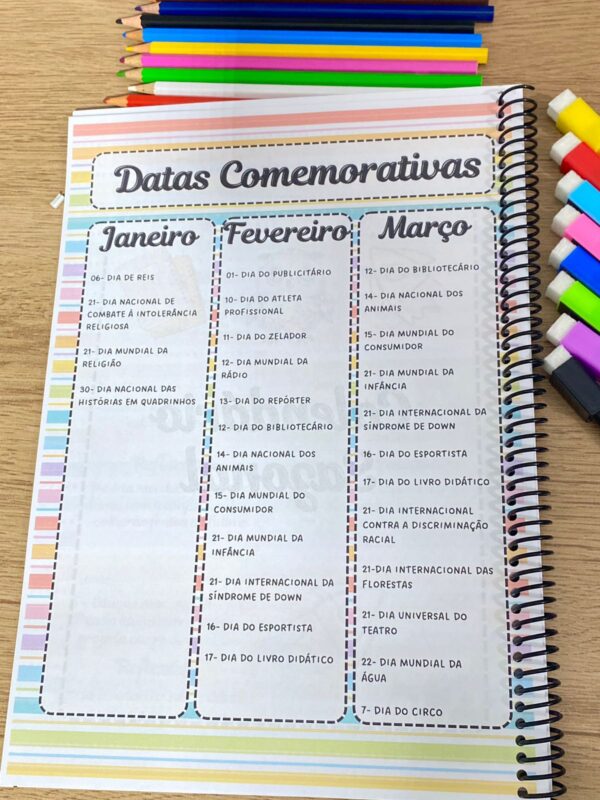 Datas Comemorativas
Janeiro
06- DIA DE REIS
21- DIA NACIONAL DE
COMBATE À INTOLERÂNCIA
RELIGIOSA
21- DIA MUNDIAL DA
RELIGIÃO
30- DIA NACIONAL DAS
HISTÓRIAS EM QUADRINHOS
Fevereiro
01- DIA DO PUBLICITÁRIO
10- DIA DO ATLETA
PROFISSIONAL
11- DIA DO ZELADOR
12- DIA MUNDIAL DA
RÁDIO
13- DIA DO REPÓRTER
12- DIA DO BIBLIOTECÁRIO
14- DIA NACIONAL DOS
ANIMAIS
15- DIA MUNDIAL DO
CONSUMIDOR
21- DIA MUNDIAL DA
INFÂNCIA
21- DIA INTERNACIONAL DA
SÍNDROME DE DOWN
16- DIA DO ESPORTISTA
17- DIA DO LIVRO DIDÁTICO
Março
12- DIA DO BIBLIOTECÁRIO
14- DIA NACIONAL DOS
ANIMAIS
15- DIA MUNDIAL DO
CONSUMIDOR
21- DIA MUNDIAL DA
INFÂNCIA
21- DIA INTERNACIONAL DA
SÍNDROME DE DOWN
16- DIA DO ESPORTISTA
17- DIA DO LIVRO DIDÁTICO
21- DIA INTERNACIONAL
CONTRA A DISCRIMINAÇÃO
RACIAL
21-DIA INTERNACIONAL DAS
FLORESTAS
21- DIA UNIVERSAL DO
TEATRO
22- DIA MUNDIAL DA
ÁGUA
7- DIA DO CIRCO